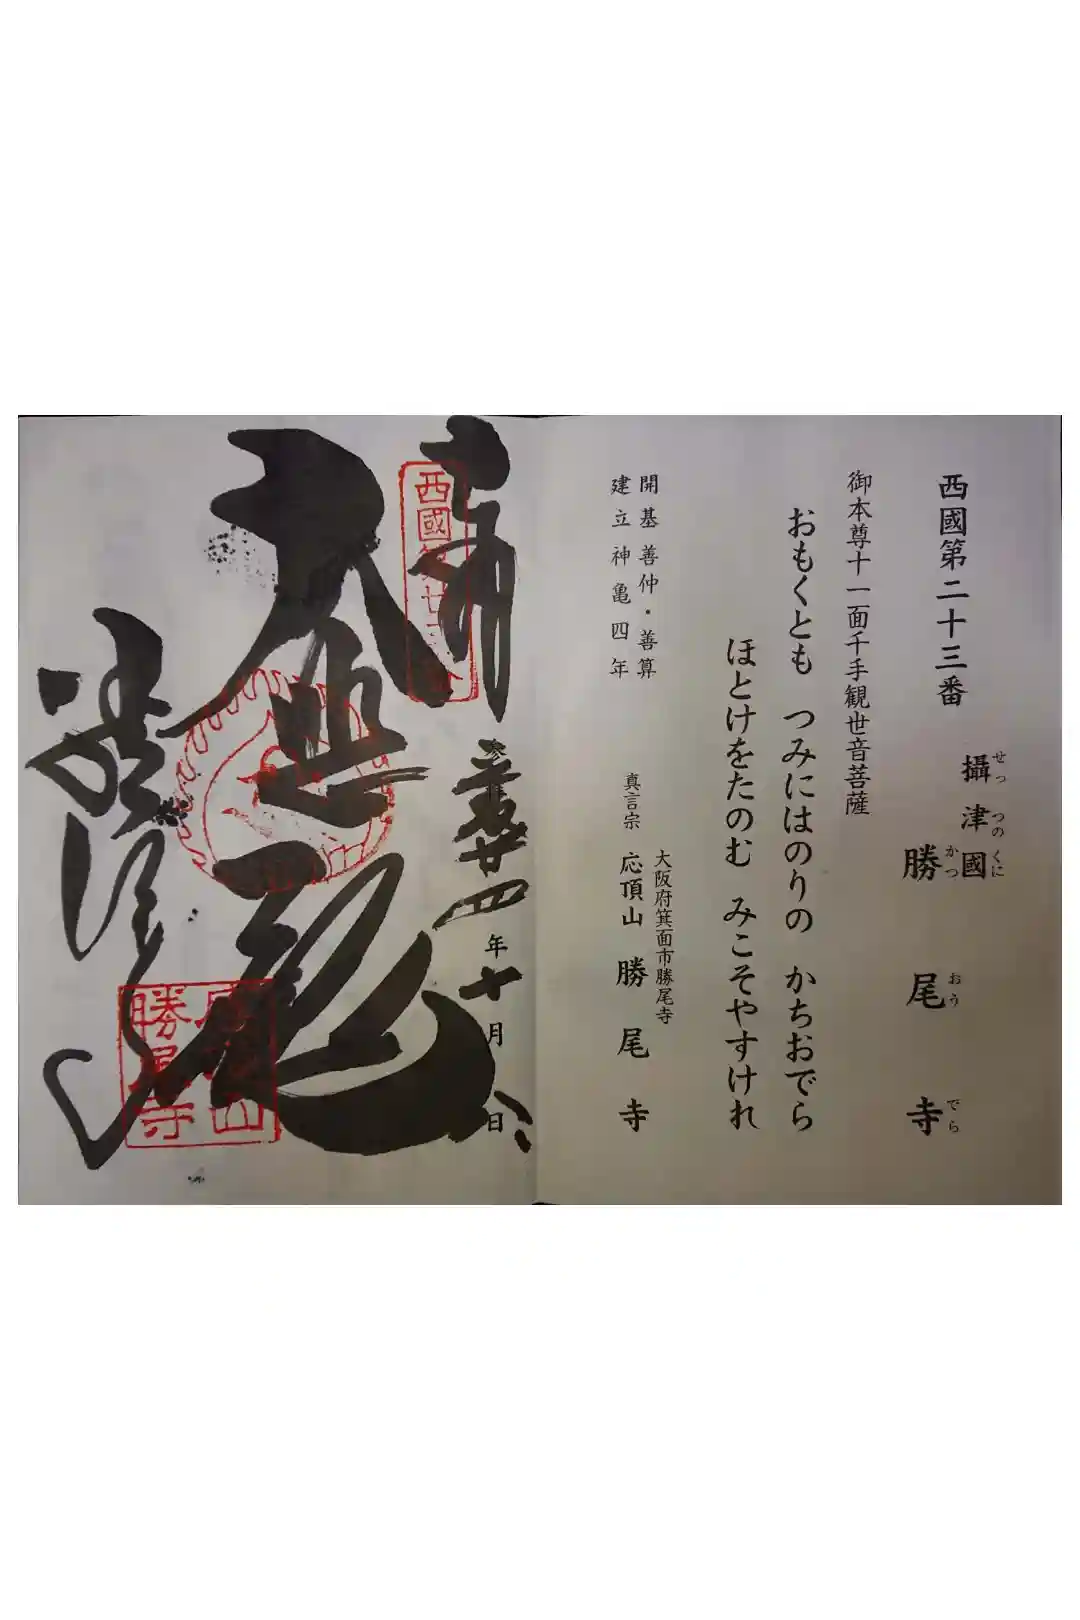 西國第二十三番
攝津國
せっつのくに
勝尾寺
かつおうでら
御本尊十一面千手観世音菩薩
おもくとも つみにはのりの かちおでら
ほとけをたのむ みこそやすけれ
開基 善仲・善算
建立 神亀四年
大阪府箕面市勝尾寺
真言宗 応頂山 勝尾寺
奉拝
平成廿四年十月八日
西國第廿三番
大悲殿
勝尾寺
応頂山
勝尾寺